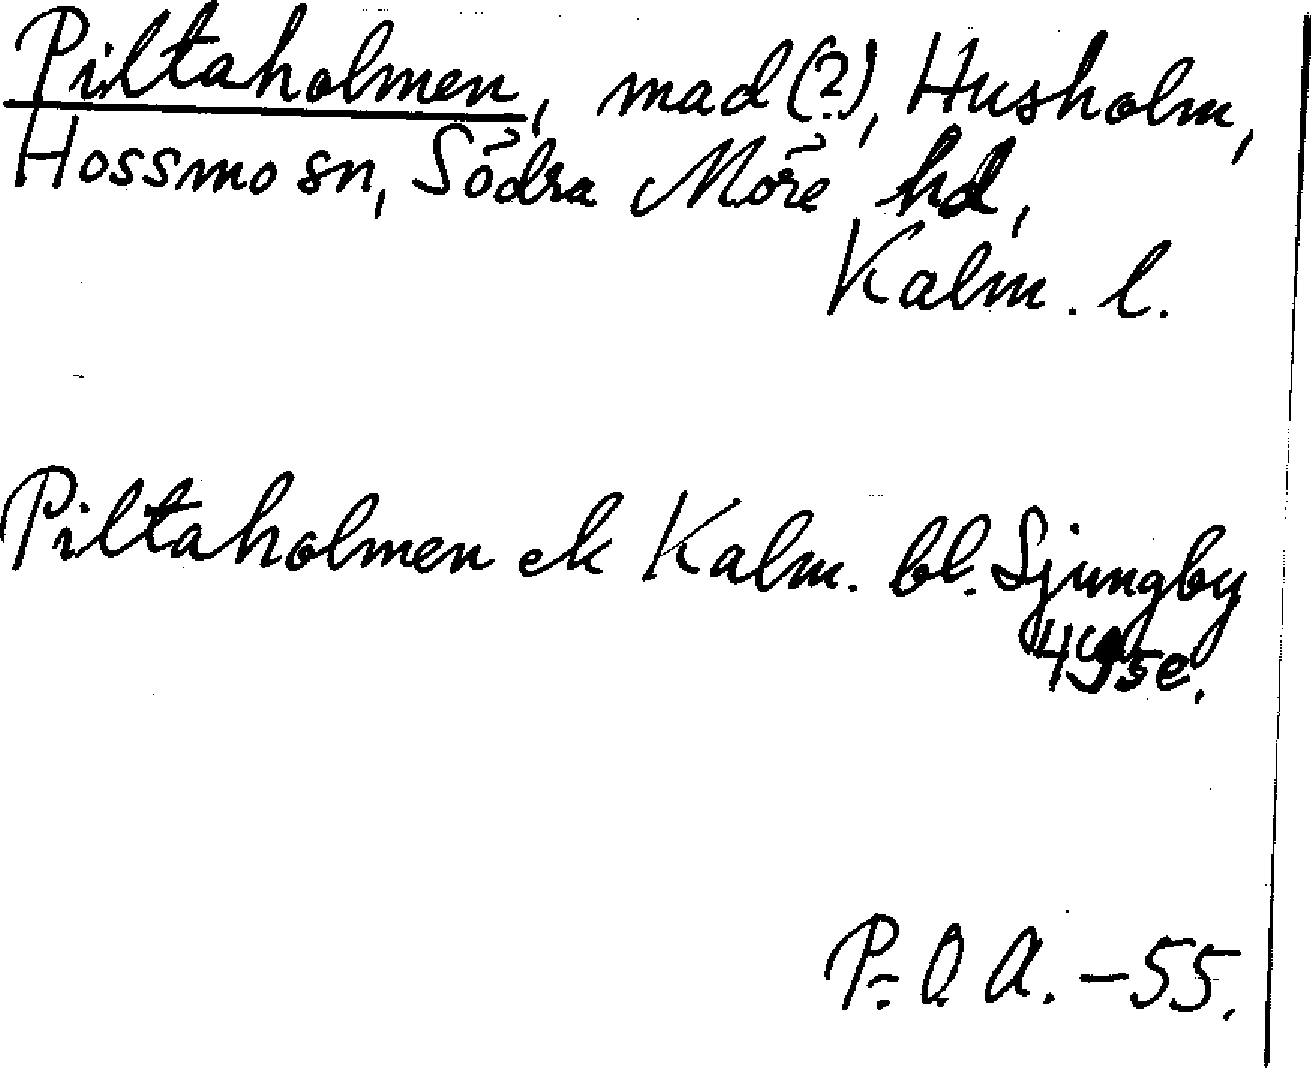 Piltaholmen, mad (?), Husholm,
Hossmo sn, Södra Möre hd,
Kalm. l.
Piltaholmen ek Kalm. bl. Ljungby
4g5e.
P. O A. -55.